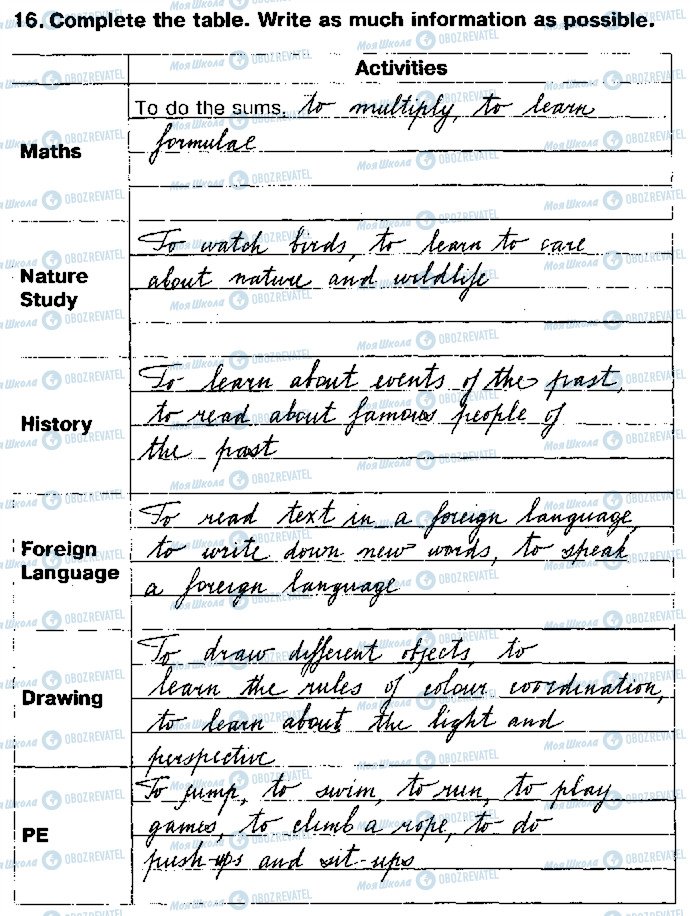 16. Complete the table. Write as much information as possible.
Activities
Maths
To do the sums, to multiply, to learn
formulae
Nature
Study
To watch birds, to learn to care
about nature and wildlife
History
To learn about events of the past,
to read about famous people of
the past
Foreign
Language
To read text in a foreign language,
to write down new words, to speak
a foreign language
Drawing
To draw different objects, to
learn the rules of colour coordination,
to learn about the light and
perspective
PE
To jump, to swim, to run, to play
games, to climb a rope, to do
push-ups and sit-ups
Моя Школа OBOZREVATEL